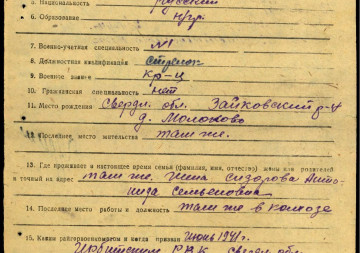 5. Национальность русский
6. Образование н/гр.
7. Военно-учетная специальность №1
8. Должностная квалификация стрелок
9. Военное звание кр-ц
10. Гражданская специальность нет
11. Место рождения Свердл. обл. Зайковский р-н
д. Молоково
12. Последнее место жительства там же.
13. Где проживает в настоящее время семья (фамилия, имя, отчество) жены или родителей
и точный их адрес там же. жена Сидорова Анто-
нида Семеновна
14. Последнее место работы и должность там же в колхозе
15. Каким райгорвоенкоматом и когда призван июнь 1941 г.
Ирбитским РВК Свердл. обл.